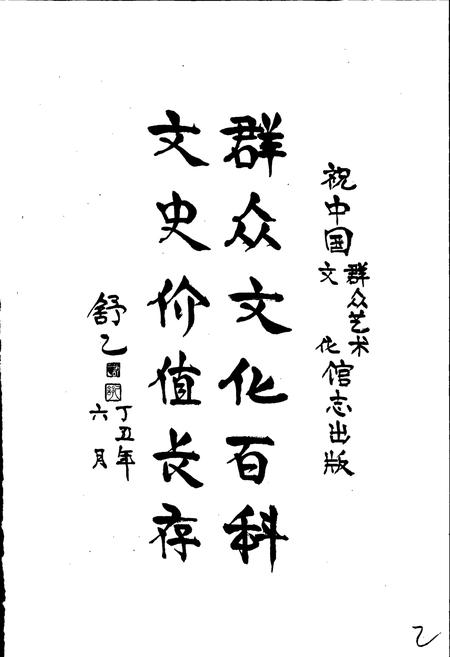 祝中国群众艺术文化馆志出版
群众文化百科
文史价值长存
舒乙
丁丑年
六月
乙